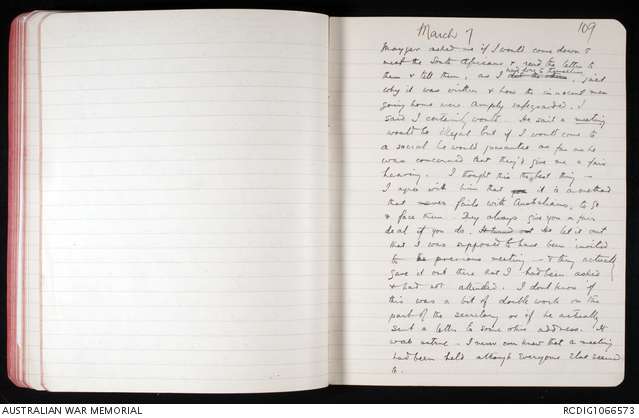 March 7
109
Mayger asked me if I would come down &
meet the South Africans & read the letter to
them & tell them, as I had done to themselves, just
why it was written & how the innocent men
going home were amply safeguarded. I
said I certainly would. He said a meeting
would be illegal but if I would come to
a social he would guarantee as far as he
was concerned that they'd give me a fair
hearing. I thought this the best thing –
I agree with him that it is a method
that never fails with Australians, to go
& face them. They always give you a fair
deal if you do. It turned out He let it out
that I was supposed to have been invited
to the previous meeting – & they actually
gave it out there that I had been asked
& had not attended. I dont know if
this was a bit of double work on the
part of the secretary or if he actually
sent a letter to some other address. It
was untrue – I never even knew that a meeting
had been held although everyone else seemed
to.
AUSTRALIAN WAR MEMORIAL
RCDIG1066573